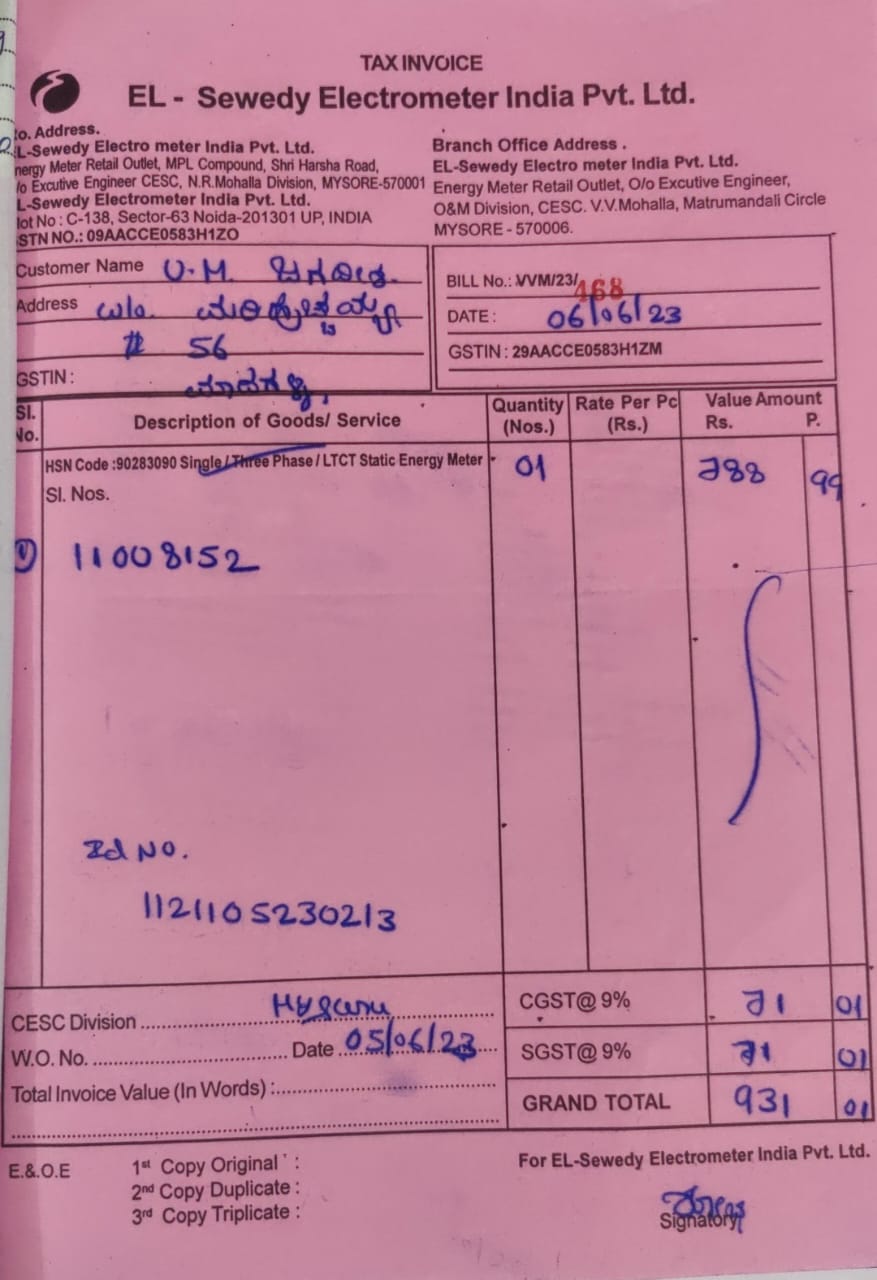 TAX INVOICE
EL - Sewedy Electrometer India Pvt. Ltd.
o. Address.
L-Sewedy Electro meter India Pvt. Ltd.
nergy Meter Retail Outlet, MPL Compound, Shri Harsha Road,
/o Excutive Engineer CESC, N.R.Mohalla Division, MYSORE-570001
L-Sewedy Electrometer India Pvt. Ltd.
lot No : C-138, Sector-63 Noida-201301 UP, INDIA
STN NO.: 09AACCE0583H1ZO
Branch Office Address .
EL-Sewedy Electro meter India Pvt. Ltd.
Energy Meter Retail Outlet, O/o Excutive Engineer,
O&M Division, CESC. V.V.Mohalla, Matrumandali Circle
MYSORE - 570006.
Customer Name U.M.
Address w/o.
# 56
GSTIN :
BILL No.: VVM/23/ 468
DATE : 06/06/23
GSTIN : 29AACCE0583H1ZM
Sl. No. Description of Goods/ Service Quantity (Nos.) Rate Per Pc (Rs.) Value Amount Rs. P.
HSN Code :90283090 Single / Three Phase / LTCT Static Energy Meter 01 788 99
Sl. Nos.
1) 11008152
Id NO.
11211052302 13
CESC Division
W.O. No. Date 05/06/23
Total Invoice Value (In Words) :
CGST@ 9% 71 01
SGST@ 9% 71 01
GRAND TOTAL 931 01
E.&.O.E
1st Copy Original :
2nd Copy Duplicate :
3rd Copy Triplicate :
For EL-Sewedy Electrometer India Pvt. Ltd.
Signatory